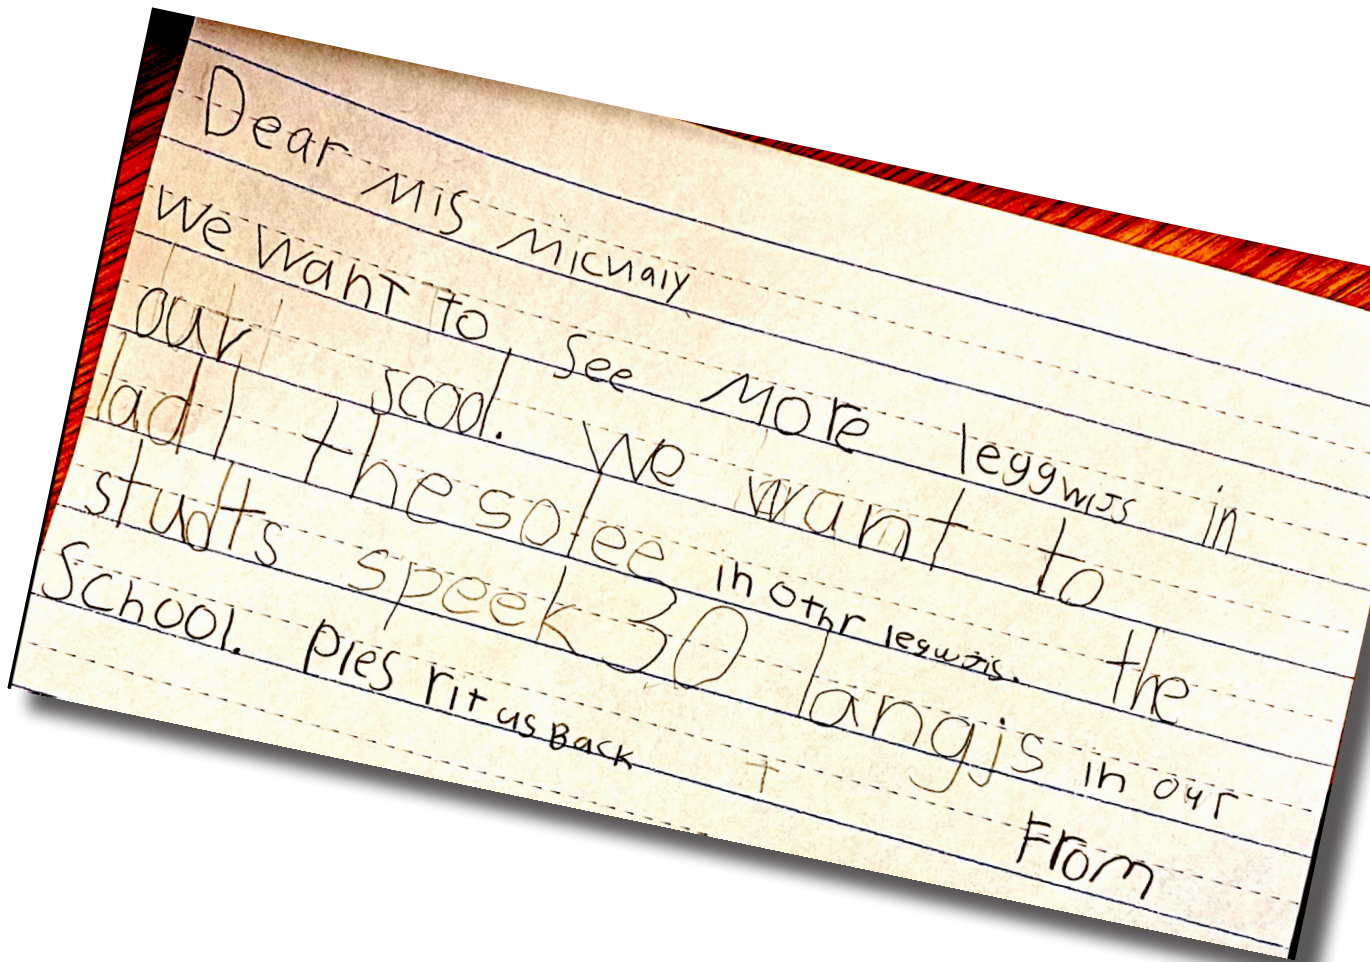 Dear Mis Micnaly
We want to see More leggwijs in
our scool. We want to
ladl the solee in othr legwjis. the
studts speek 30 langjs in our
School. Ples rit us Back
From